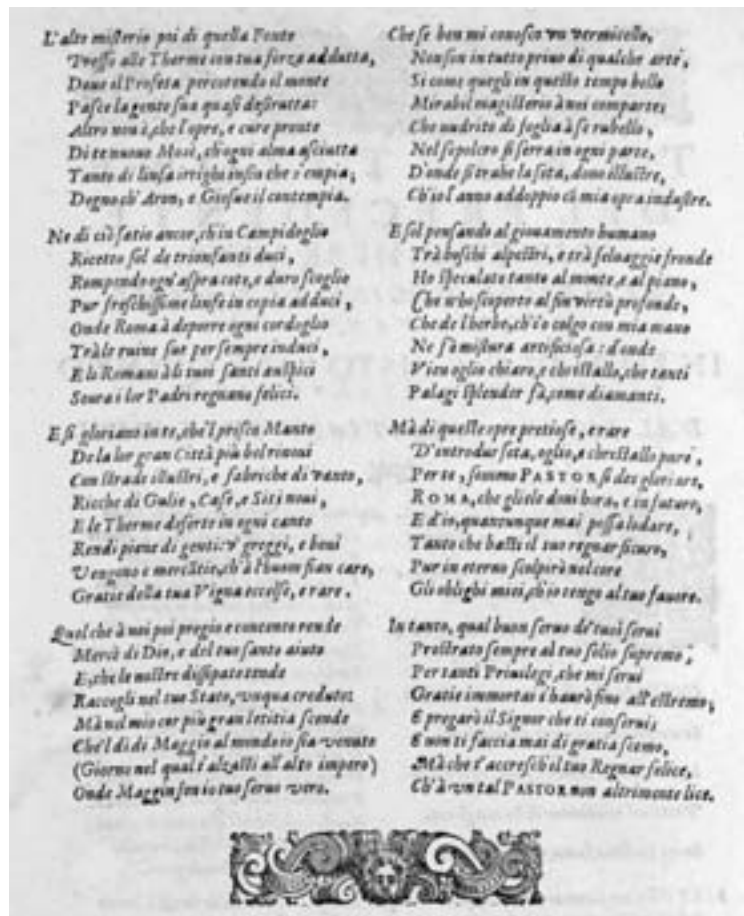 L'alto misterio poi di quella Fonte
Presso alle Therme con tua forza addutta,
Doue il Profeta percotendo il monte
Pasce la gente sua quasi destrutta:
Altro non è, che l'opre, e cure pronte
Di te nuouo Mosè, ch'ogni alma asciutta
Tanto di linfa irrighi insin che s'empia;
Degno ch'Aron, e Giosue il contempia.
Ne di ciò satio ancor, ch'in Campidoglio
Ricetto sol de trionfanti duci,
Rompendo ogn'aspra cote, e duro scoglio
Pur freschissime linfe in copia adduci,
Onde Roma à deporre ogni cordoglio
Trà le ruine sue per sempre induci,
E li Romani à li tuoi santi auspici
Soura i lor Padri regnano felici.
E si gloriano in te, che'l prisco Mante
De la lor gran Città più bel rinoui
Con strade illustri, e fabriche di vanto,
Ricche di Gulie, Case, e Siti noui,
E le Therme deserte in ogni canto
Rendi piene di genti: v' greggi, e boui
Vengono e mercãtie, ch'à l'huom sian care,
Gratie della tua Vigna eccelse, e rare.
Quel che à noi poi pregio e contento rende
Mercè di Dio, e del tuo santo aiuto
E, che le nostre dissipate
Raccogli nel tuo Stato, vnqua credute:
Mà nel mio cor più gran letitia scende
Che'l dì di Maggio al mondo io sia venuto
(Giorno nel qual t'alzasti all'alto impero)
Onde Maggin son io tuo seruo vero.
Che se ben mi conosco vn vermicello,
Non son in tutto priuo di qualche arte,
Si come quegli in questo tempo bello
Mirabil magisterio à noi comparte;
Che nudrito di foglia à se rubello,
Nel sepolcro si serra in ogni parte,
D'onde si trahe la seta, dono illustre,
Ch'io l'anno addoppio cõ mia opra industre.
E sol pensando al giouamento humano
Trà boschi alpestri, e trà seluaggie fronde
Ho speculato tanto al monte, e al piano,
Che v'ho scoperto al fin virtù profonde,
Che de l'herbe, ch'io colgo con mia mano
Ne fò mistura artificiosa: d'onde
Vien oglio chiaro, e christallo, che tanti
Palagi splender fà, come diamanti.
Mà di queste opre pretiose, e rare
D'introdur seta, oglio, e christallo puro,
Per te, sommo PASTOR si dee gloriare,
ROMA, che gliele doni hora, e in futuro,
E d'io, quantunque mai possa lodare,
Tanto che basti il tuo regnar sicuro,
Pur in eterno scolpirò nel core
Gli oblighi miei, ch'io tengo al tuo fauore.
In tanto, qual buon seruo de' tuoi serui
Prostrato sempre al tuo solio supremo,
Per tanti Priuilegi, che mi serui
Gratie immortai t'haurò fino all'estremo;
E pregarò il Signor che ti conserui;
E non ti faccia mai di gratia scemo,
Mà che t'accresch'il tuo Regnar felice,
Ch'à vn tal PASTOR non altrimente lice.